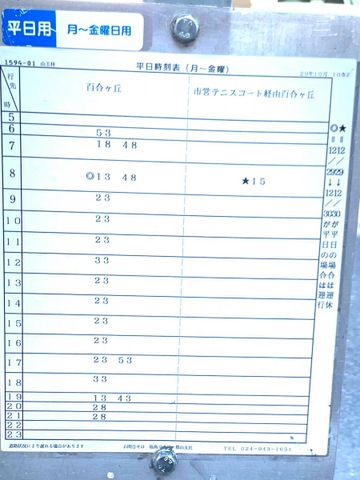 平日用 月〜金曜日用
1594-01
平日時刻表（月〜金曜）
行先
時
百合ヶ丘
市営テニスコート経由百合ヶ丘
5
6 53
7 18 48
8 ◎13 48 ★15
9 23
10 23
11 23
12 33
13 23
14 23
15 23
16 23
17 23 53
18 33
19 13 43
20 28
21 28
22
23
★=12/29→12/30が平日の場合は運休
◎=12/29→12/30が平日の場合は運行
道路状況により遅れる場合があります